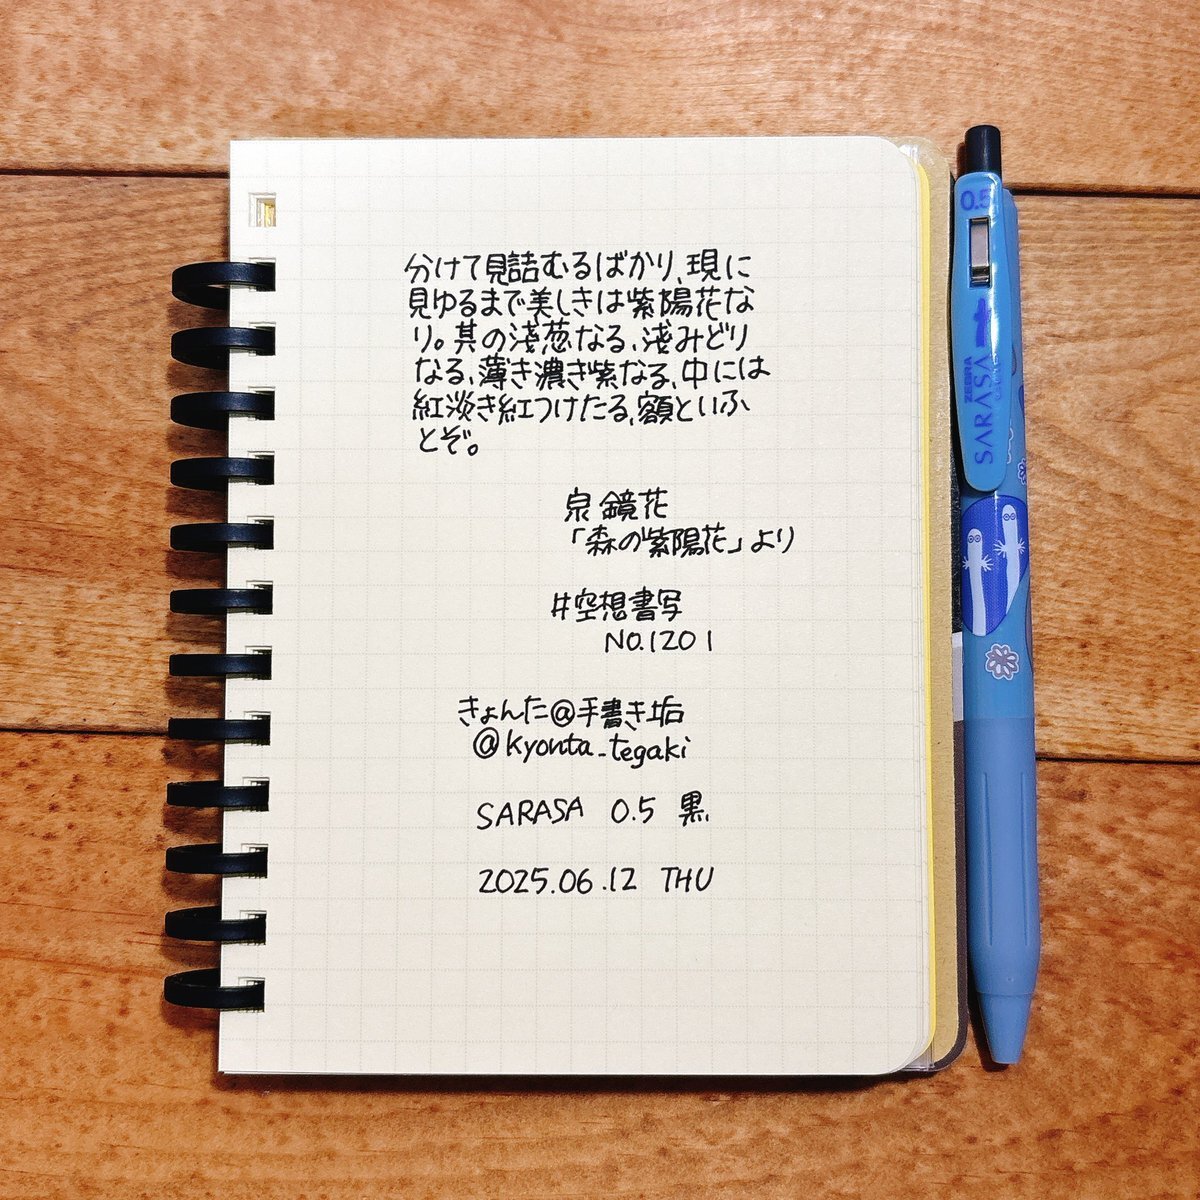 分けて見詰むるばかり、現に
見ゆるまで美しきは紫陽花な
り。其の淺葱なる、淺みどり
なる、薄き濃き紫なる、中には
紅淡き紅つけたる、額といふ
とぞ。
泉 鏡花
「森の紫陽花」より
#空想書写
NO.1201
きょんた@手書き垢
@kyonta_tegaki
SARASA 0.5 黒
2025.06.12 THU
0.5
ZEBRA
SARASA